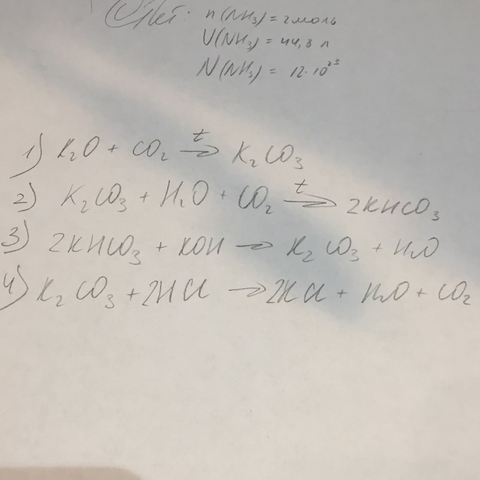 Ответ: n(NH₃) = 2моль
V(NH₃) = 44,8 л
N(NH₃) = 12·10²³
1) K₂O + CO₂ →ᵗ K₂CO₃
2) K₂CO₃ + H₂O + CO₂ →ᵗ 2KHCO₃
3) 2KHCO₃ + KOH → K₂CO₃ + H₂O
4) K₂CO₃ + 2HCl → 2KCl + H₂O + CO₂